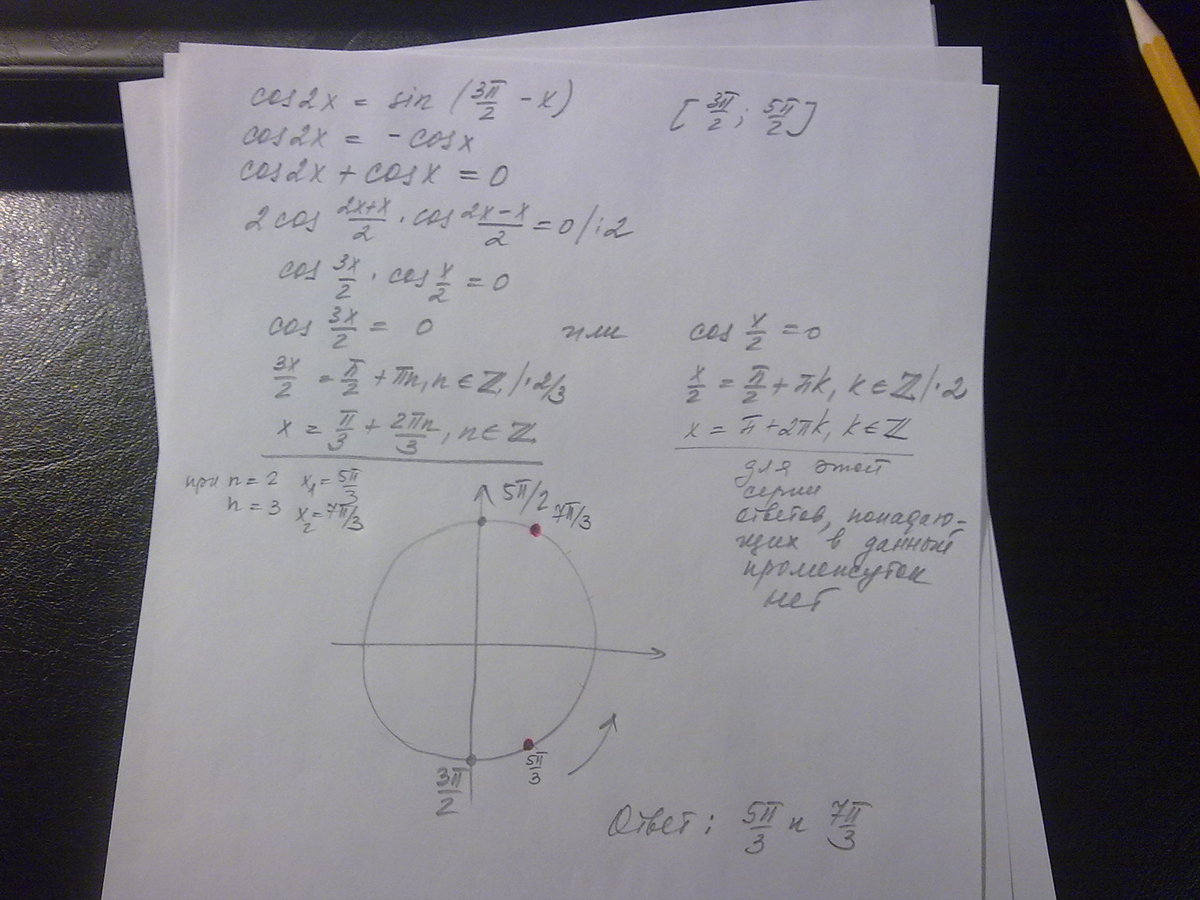 cos2x = sin (3π/2 - x) [3π/2; 5π/2]
cos2x = - cosx
cos2x + cosx = 0
2 cos (2x+x)/2 · cos (2x-x)/2 = 0 / :2
cos 3x/2 · cos x/2 = 0
cos 3x/2 = 0 или cos x/2 = 0
3x/2 = π/2 + πn, n ∈ ℤ / · 2/3
x/2 = π/2 + πk, k ∈ ℤ / · 2
x = π/3 + 2πn/3, n ∈ ℤ
x = π + 2πk, k ∈ ℤ
при n = 2 x₁ = 5π/3
n = 3 x₂ = 7π/3
для этой
серии
ответов, попадаю-
щих в данный
промежуток
нет
5π/2
7π/3
5π/3
3π/2
Ответ: 5π/3 и 7π/3